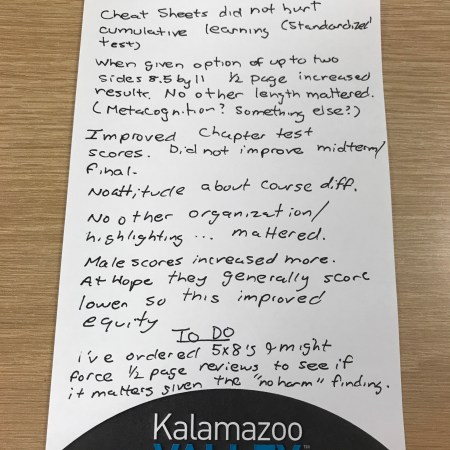 Cheat Sheets did not hurt
cumulative learning (Standardized
test)
When given option of up to two
sides 8.5 by 11 1/2 page increased
results. No other length mattered.
(Metacognition? Something else?)
Improved Chapter test
scores. Did not improve midterm/
final.
No attitude about course diff.
No other organization/
highlighting ... mattered.
Male scores increased more.
At Hope they generally score
lower so this improved
equity
TO DO
i've ordered 5x8's & might
force 1/2 page reviews to see if
it matters given the "no harm" finding.
Kalamazoo
VALLEY™